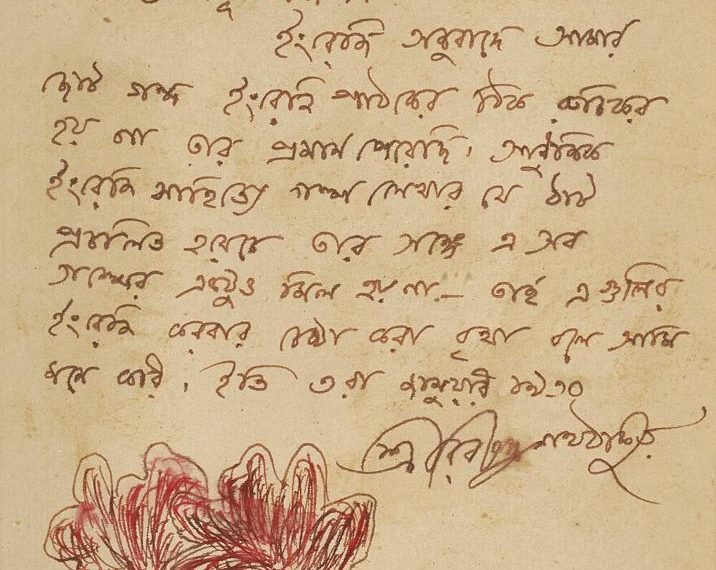 ইংরেজি অনুবাদে আমার
ছোট গল্প ইংরেজি পাঠকের ঠিক রুচিকর
হয় না তার প্রমাণ পেয়েছি। আধুনিক
ইংরেজি সাহিত্যে গল্প লেখার যে ঠাট
প্রচলিত হয়েছে তার সঙ্গে এ সব
গল্পের একটুও মিল হয় না— তাই এগুলির
ইংরেজি করবার চেষ্টা করা বৃথা বলে আমি
মনে করি। ইতি ৩রা জানুয়ারি ১৯৩০
শ্রীরবীন্দ্রনাথ ঠাকুর